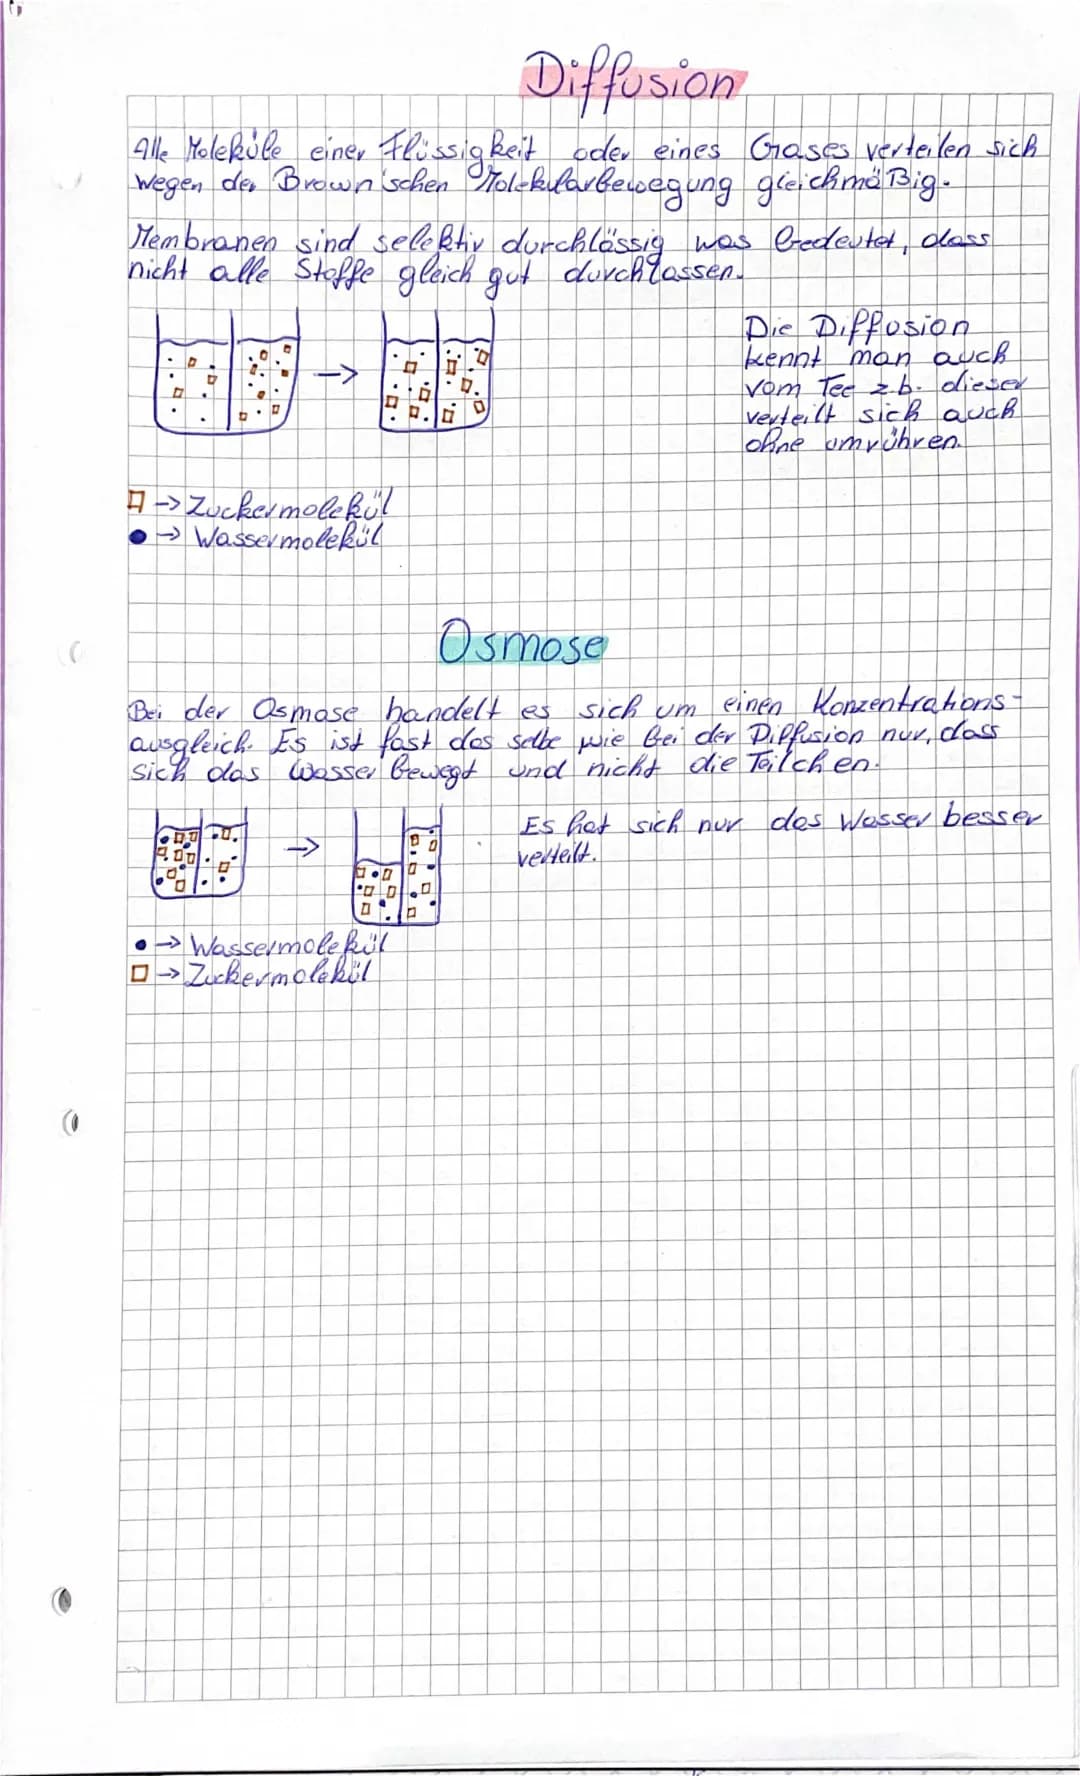 Diffusion
Alle Moleküle einer Flüssigkeit oder eines Gases verteilen sich
wegen der Brown'schen Molekularbewegung gleichmäßig.
Membranen sind selektiv durchlässig was bedeutet, dass
nicht alle Stoffe gleich gut durchlassen.
Die Diffusion
kennt man auch
vom Tee z.b. dieser
verteilt sich auch
ohne umrühren.
→ Zuckermolekül
→ Wassermolekül
Osmose
Bei der Osmose handelt es sich um einen Konzentrations-
ausgleich. Es ist fast das selbe wie bei der Diffusion nur, dass
sich das Wasser bewegt und nicht die Teilchen.
Es hat sich nur das Wasser besser
verteilt.
→ Wassermolekül
→ Zuckermolekül